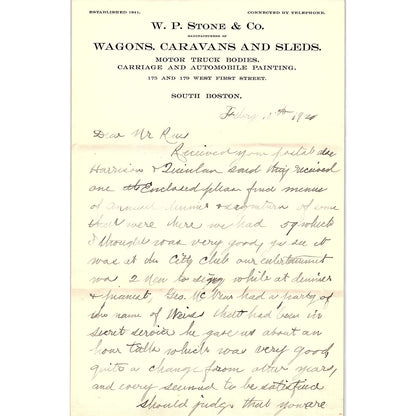 ESTABLISHED 1841. CONNECTED BY TELEPHONE.
W. P. STONE & CO.
MANUFACTURERS OF
WAGONS, CARAVANS AND SLEDS.
MOTOR TRUCK BODIES.
CARRIAGE AND AUTOMOBILE PAINTING.
175 AND 179 WEST FIRST STREET.
SOUTH BOSTON.
Dear Mr
Received your postal also
Harrison & Quinlan said they received
one Enclosed please find menus
of annual dinner & of some
that were there we had 59 which
I thought was very good, you see it
was at the City club our entertainment
was 2 men to sing while at dinner
& pianist, Geo. Mc had a party of
the name of Weiss that had been in
secret service he gave us about an
hour talk which was very good
quite a change from other years,
and every seemed to be satisfied
should judge that you are